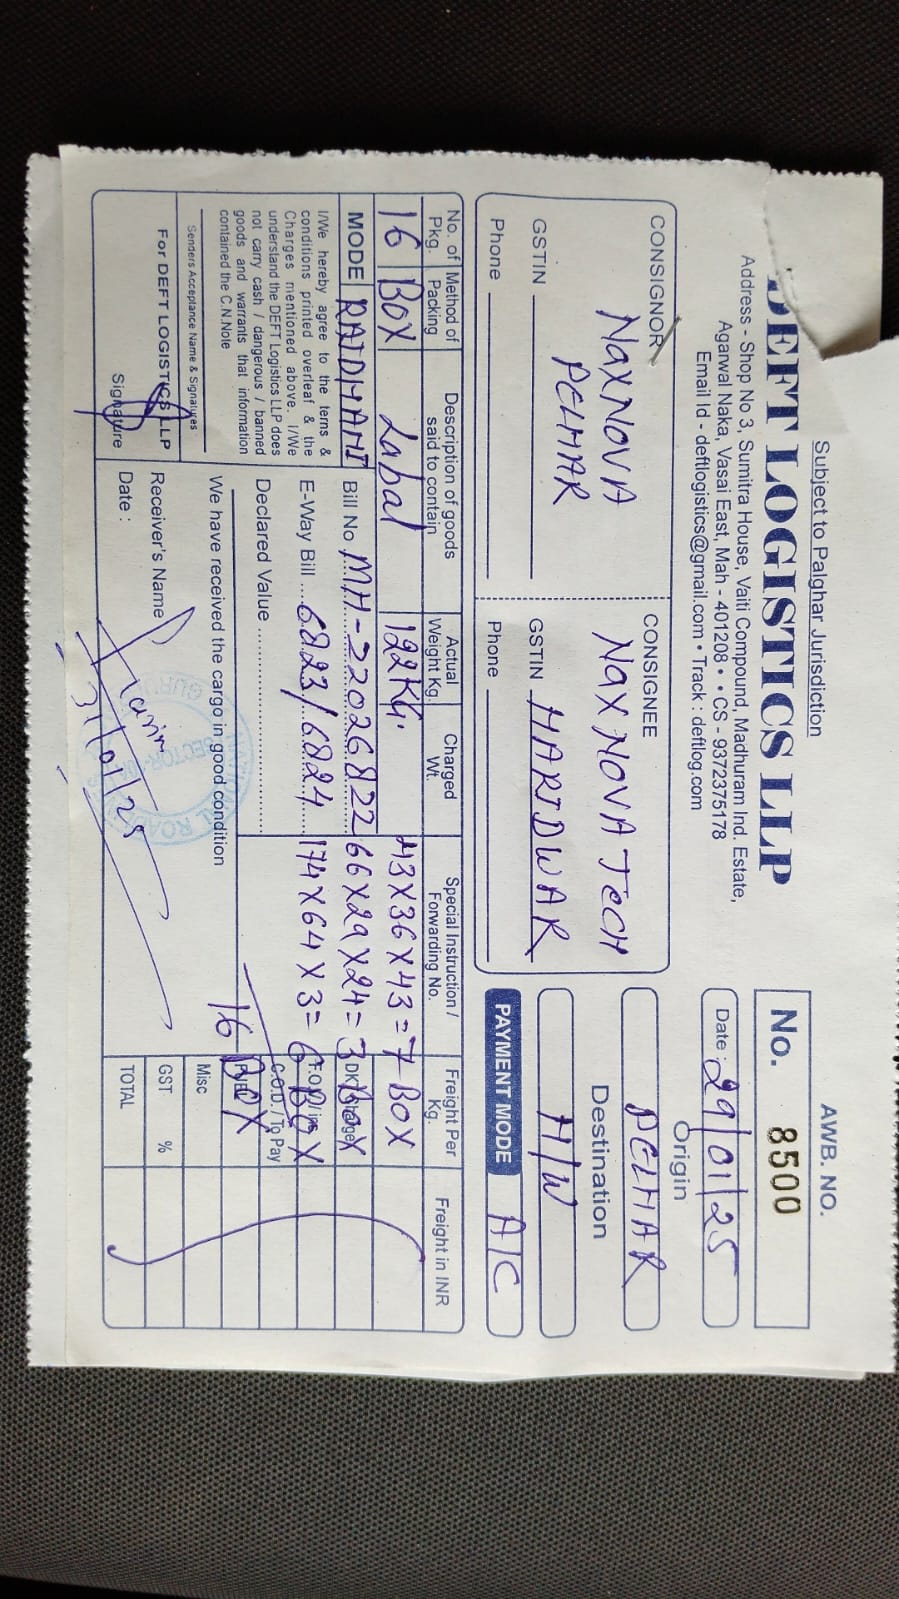 Subject to Palghar Jurisdiction
DEFT LOGISTICS LLP
Address - Shop No 3, Sumitra House, Vaiti Compound, Madhuram Ind. Estate,
Agarwal Naka, Vasai East, Mah - 401208 • • CS - 9372375178
Email Id - deftlogistics@gmail.com • Track : deftlog.com
AWB. NO.
No. 8500
Date : 29/01/25
Origin
PELHAR
Destination
H/W
PAYMENT MODE A/C
CONSIGNOR
NaxNOVA
PELHAR
GSTIN
Phone
CONSIGNEE
NaX NOVA TeCH
GSTIN HARIDWAR
Phone
No. of Pkg. Method of Packing Description of goods said to contain Actual Weight Kg. Charged Wt. Special Instruction / Forwarding No. Freight Per Kg. Freight in INR
16 BOX Labal 122KG. 43X36X43=7 BOX
MODE RAJDHANI Bill No. MH-22026822 66X29X24=3 Box
E-Way Bill ... 6823/6824 174X64X3=6 BOX
Declared Value
C.O.D. / To Pay
16 BOX
Misc
GST %
TOTAL
I/We hereby agree to the terns &
conditions printed overleaf & the
Charges mentioned above. I/We
understand the DEFT Logistics LLP does
not carry cash / dangerous / banned
goods and warrants that information
contained the C.N.Note
Senders Acceptance Name & Signatures
For DEFT LOGISTICS LLP
Signature
We have received the cargo in good condition
Receiver's Name
Date :
31/01/25